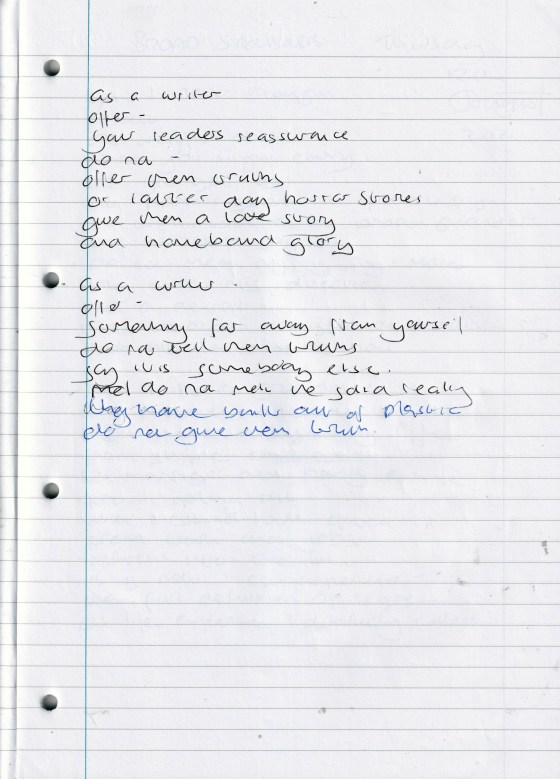 as a writer
offer -
your readers reassurance
do not -
offer them truths
or latter day horror stories
give them a love story
and homebound glory
as a writer.
offer -
something far away from yourself
do not tell them truths
say it is somebody else.
do not melt the said really
they have built out of plastic
do not give them truth.